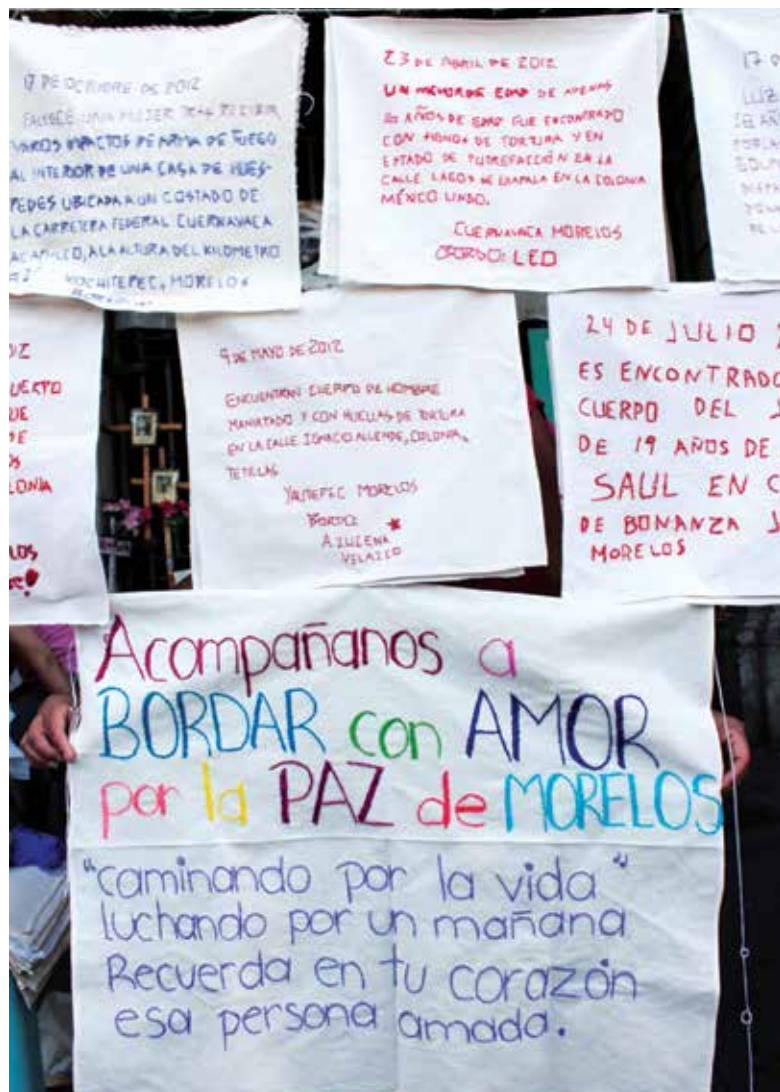 17 DE OCTUBRE DE 2012
FALLECE UNA MUJER TRAS RECIBIR
VARIOS IMPACTOS DE ARMA DE FUEGO
AL INTERIOR DE UNA CASA DE HUES-
PEDES UBICADA A UN COSTADO DE
LA CARRETERA FEDERAL CUERNAVACA
ACAPULCO, A LA ALTURA DEL KILOMETRO
XOCHITEPEC, MORELOS
23 DE ABRIL DE 2012
UN MENOR DE EDAD DE APENAS
AÑOS DE EDAD FUE ENCONTRADO
CON SIGNOS DE TORTURA Y EN
ESTADO DE PUTREFACCIÓN EN LA
CALLE LAGOS DE CHAPALA EN LA COLONIA
MÉXICO LINDO.
CUERNAVACA MORELOS
BORDO: LEO
17 D
LUZ
18 AÑ
UERPO
UE
DE
LONIA
LOS
9 DE MAYO DE 2012
ENCUENTRAN CUERPO DE HOMBRE
MANIATADO Y CON HUELLAS DE TORTURA
EN LA CALLE IGNACIO ALLENDE, COLONIA,
TETELAS
YAUTEPEC MORELOS
BORDO:
AZUCENA
VELAZCO
24 DE JULIO
ES ENCONTRADO
CUERPO DEL J
DE 19 AÑOS DE
SAUL EN C
DE BONANZA J
MORELOS
Acompañanos a
BORDAR con AMOR
por la PAZ de MORELOS
"caminando por la vida"
luchando por un mañana
Recuerda en tu corazón
esa persona amada.